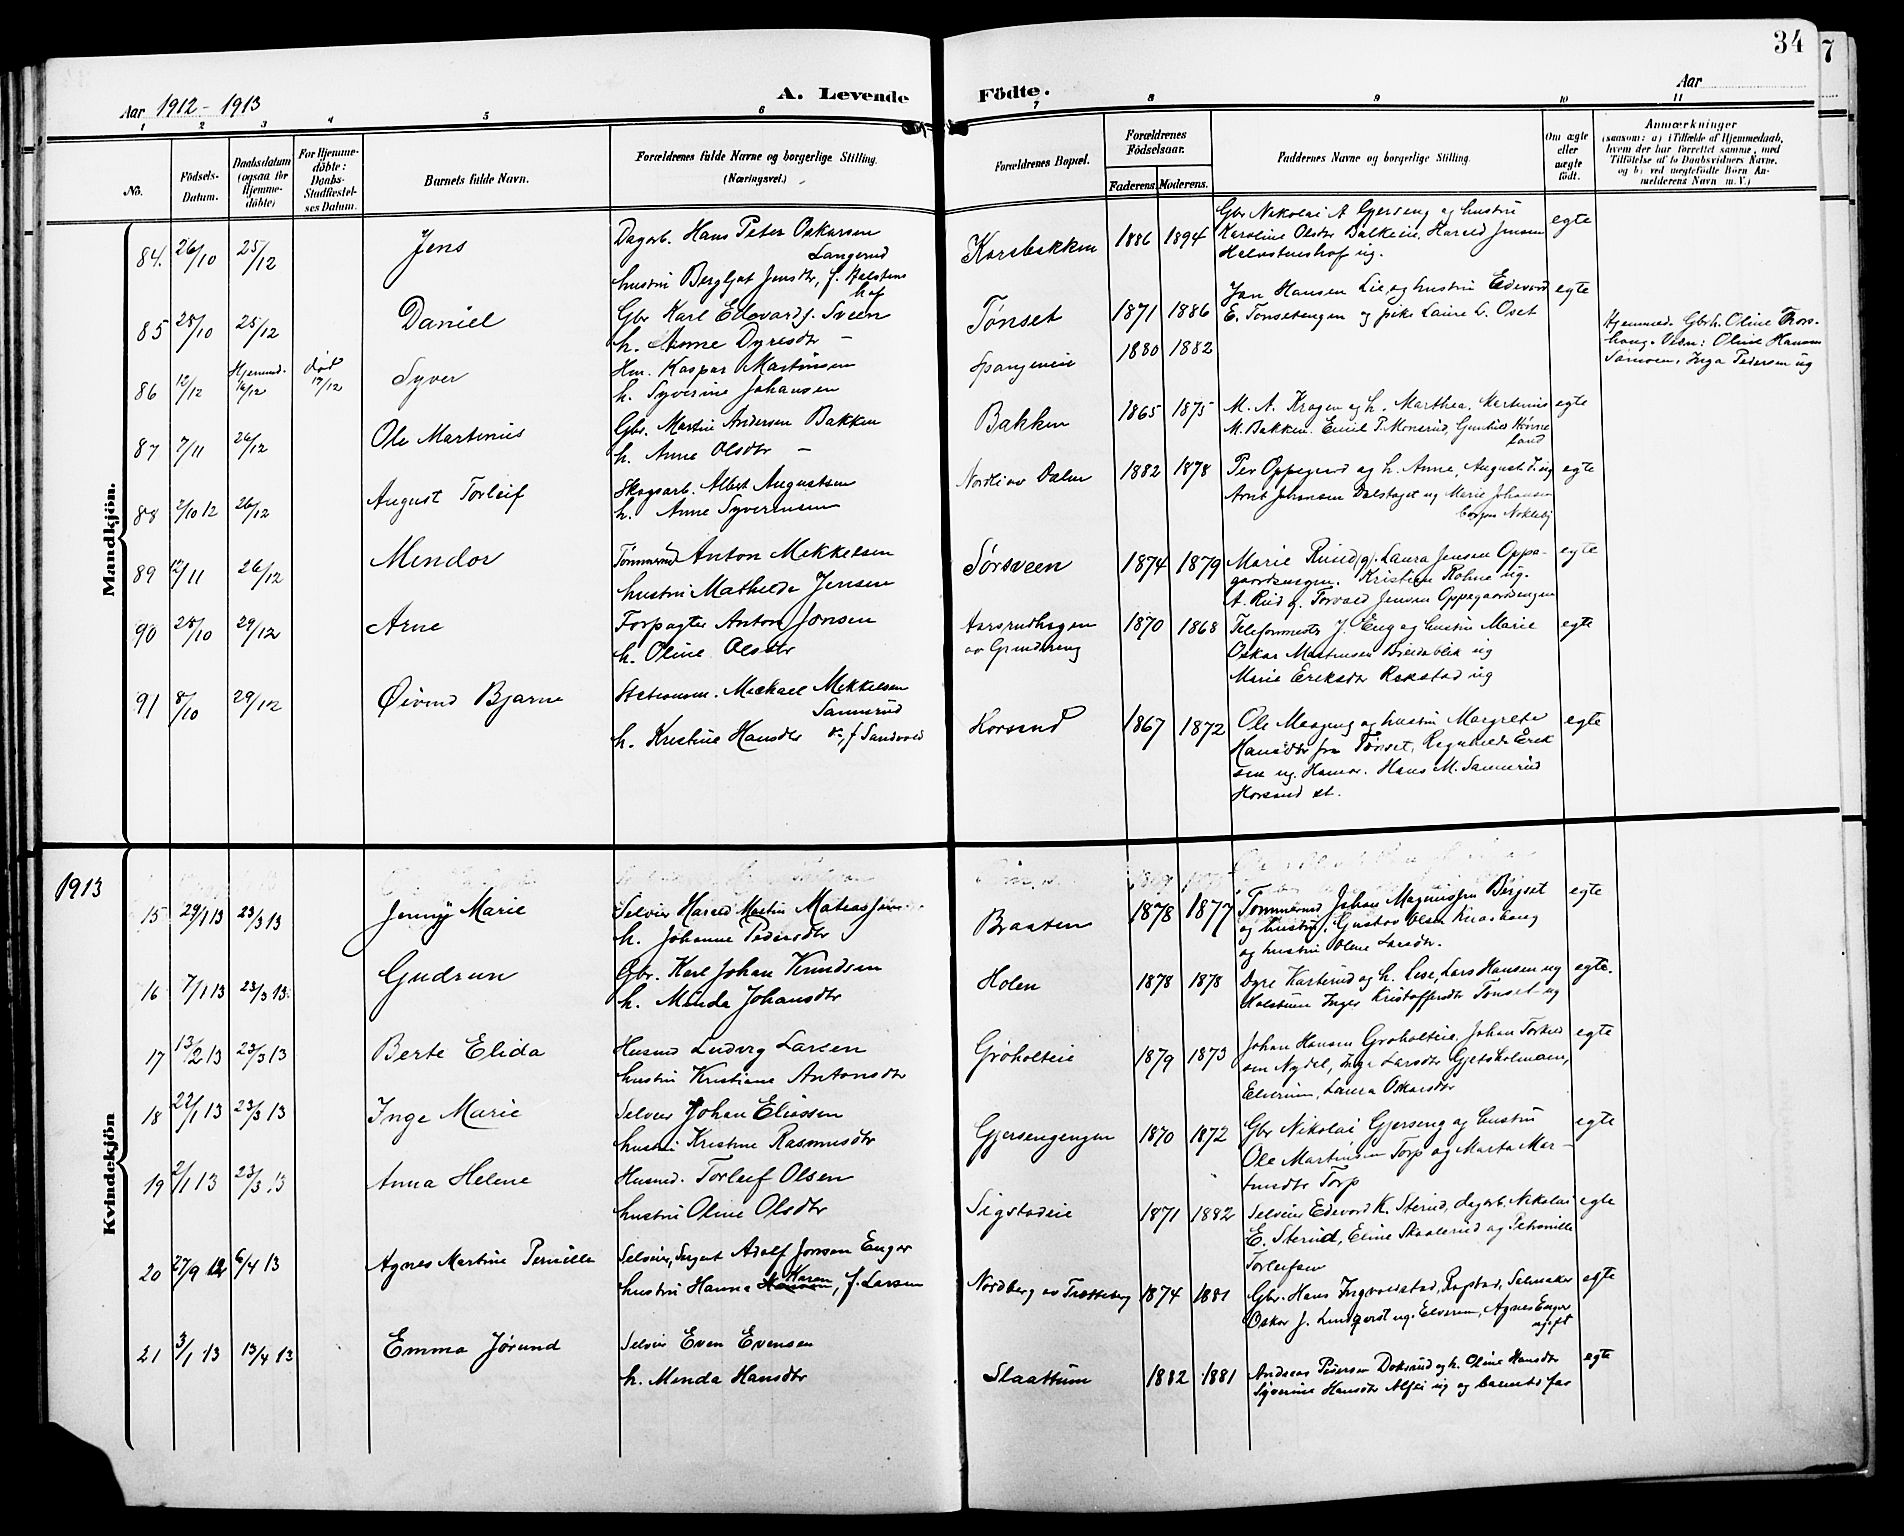 34
7
Aar 1912-1913
A. Levende Födte.
Aar
1 2 3 4 5 6 7 8 9 10 11
No.
Födsels-Datum.
Daabsdatum (ogsaa for Hjemme-döbte)
For Hjemme-döbte: Daabs-Stadfæstel-ses Datum.
Barnets fulde Navn.
Forældrenes fulde Navne og borgerlige Stilling. (Næringsvei.)
Forældrenes Bopæl.
Forældrenes Födselsaar.
Faderens. Moderens.
Faddernes Navne og borgerlige Stilling.
Om ægte eller uægte födt.
Anmærkninger
(saasom: a) i Tilfælde af Hjemmedaab, hvem der har forrettet samme, med Tilföielse af to Daabsvidners Navne, og b) ved uegtefödte Börn Anmelderens Navn m. V.)
Mandkjön.
84. 26/10 25/12 Jens
Dagarb. Hans Peter Oskarsen Langerud
hustru Bergljot Jensdtr, f. Halstenshof
Korsbakken 1886 1894
Gbr Nikolai A Gjerseng og hustru
Karoline Olsdtr Balkeie, Harald Jensen
Halvstenshof ug. egte
85 28/10 25/12 Daniel
Gbr Karl Edvards. Sveen
h. Anne Dyresdtr -
Tønset 1871 1886
Jon Hansen Lie og hustru Edevard
E. Tønsetengen og pike Laura L. Oset egte
86 12/12 Hjemmed. 12/12 død 13/12 Syver
Hm. Kaspar Martinsen
h. Syverine Johansen
Spangeneie 1880 1882
Hjemmed. Gbrh. Oline Thors-
haug. Vidn: Oline Hansen
Sørmoen, Inga Pedersen ug
87 7/11 26/12 Ole Martinius
Gbr. Martin Andersen Bakken
h. Anne Olsdtr -
Bakken 1865 1875
M. A. Kragen og h. Marthea, Martinius
M. Bakken. Emil T. Monerud, egte
88 2/10 12 26/12 August Torleif
Skogsarb. Albert Augustsen
h. Anne Syversen
Nordli av Dalen 1882 1878
Per Oppegard og h. Anne, August
Arnt Johansen og Marie Johansen
egte
89 12/11 26/12 Mendor
Tømmermd Anton Mikkelsen
hustru Mathilde Jensen
Sørsveen 1874 1879
Marie Ruud, g. Laura Jensen Oppe-
gaardsengen. Kristian Rohne ug.
A. Rud g. Torvald Jensen Oppegaardsengen egte
90 28/10 29/12 Arne
Forpagter Anton Jonsen
h. Oline Olsdtr
Aarsrudhagen av Grundseng 1870 1868
Telefonmester J. Eng og hustru Marie
Oskar Martinsen Breidablik ug
Marie Eriksdtr Rokstad ug egte
91 8/10 29/12 Øivind Bjarne
Stationsm. Mickael Mikkelsen Sannerud
h. Kristine Hansdtr f. Sandvold
Horsend 1867 1872
Ole Maageng og hustru Margrete
Hansdtr fra Tønset, Ragnhild Erik
sen ug. Hamar. Hans M. Sannerud
Horsend st. egte
1913
Kvindekjön
15 29/1 13 23/3 13 Jenny Marie
Selveier Harald Martin Matias Jen
h. Johanne Pedersdtr
Braaten 1878 1877
Tømmermd Johan Magnussen Bergset
og hustru, Gustav Olsen Kirashaug
og hustru Oline Larsdtr. egte
16 7/1 13 23/3 13. Gudrun
Gbr. Karl Johan Knudsen
h. Minda Johansdtr
Holen 1878 1878
Dyre Karterud og h. Lise, Lars Hansen ug
Inger Kristoffersdtr Tønset ug egte.
17 13/2 13 23/3 13 Berte Elida
Husmd Ludvig Larsen
hustru Kristiane Antonsdtr
Grøholteie 1879 1873
Johan Hansen Grøholteie, Johan Torkild
sen Nydal, Inga Larsdtr Gjetsholmen,
Elverum, Laura Oskarsdtr egte
18 22/1 13 23/3 13 Inge Marie
Selveier Johan Eliassen
hustru Kristine Rasmusdtr
Gjersengengen 1870 1872
Gbr Nikolai Gjerseng og hustru
Ole Martinsen Torp og Marta Mar-
tinsdtr Torp egte
19 2/1 13 23/3 13 Anna Helene
Husmd. Torleif Olsen
hustru Oline Olsdtr
Sigstadeie 1871 1882
Selveier Edevard K. Sterud, dagarb. Nikolai
E. Sterud, Eline Skaalerud og Petronille
Torleifsen egte
20 27/9 12 6/4 13 Agnes Martine Pernille
Selveier, Sergent Adolf Jonsen Enger
hustru Hanna Karen, f. Larsen
Nordberg av Trætteberg 1874 1881
Gbr. Hans Ingvoldstad, Rogstad, Salmaker
Oskar J. Lindqvist ug. Elverum, Agnes Enger
ugift egte
21 3/1 13 13/4 13 Emma Jørund
Selveier Even Evensen
h. Minda Hansdtr
Slaattum 1882 1881
Andreas Pedersen Doksrud og h. Oline Hansdtr
Syverine Hansdtr Alfei ug og barnets far egte